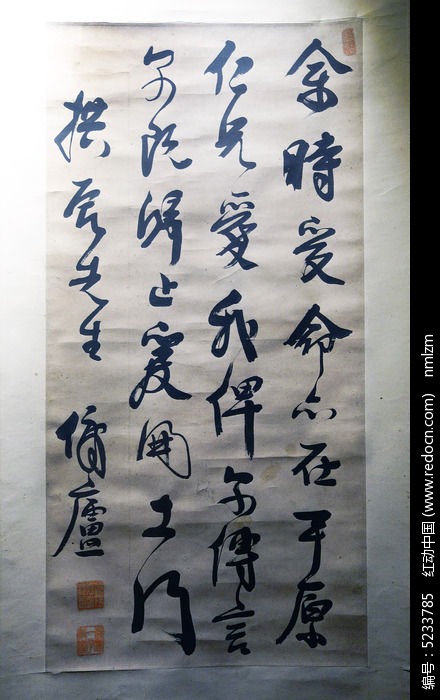 余時受命亦在平原
仁兄愛我俾尔傳言
尔既歸止爰開土門
拱辰先生
廬
编号：5233785 红动中国 (www.redocn.com) nmlzm